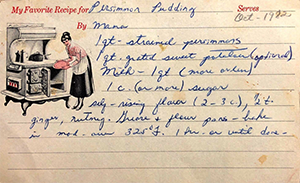 My Favorite Recipe for Persimmon Pudding Serves
By Mama Oct - 1982
1 qt - strained persimmons
1 qt. grated sweet potatoes (optional)
Milk - 1 qt (more or less)
1 c. (or more) sugar
self-rising flour (2-3 c), 2 t.
ginger, nutmeg. Grease & flour pans - bake
in mod. oven 325°F. 1 hr. or until done -